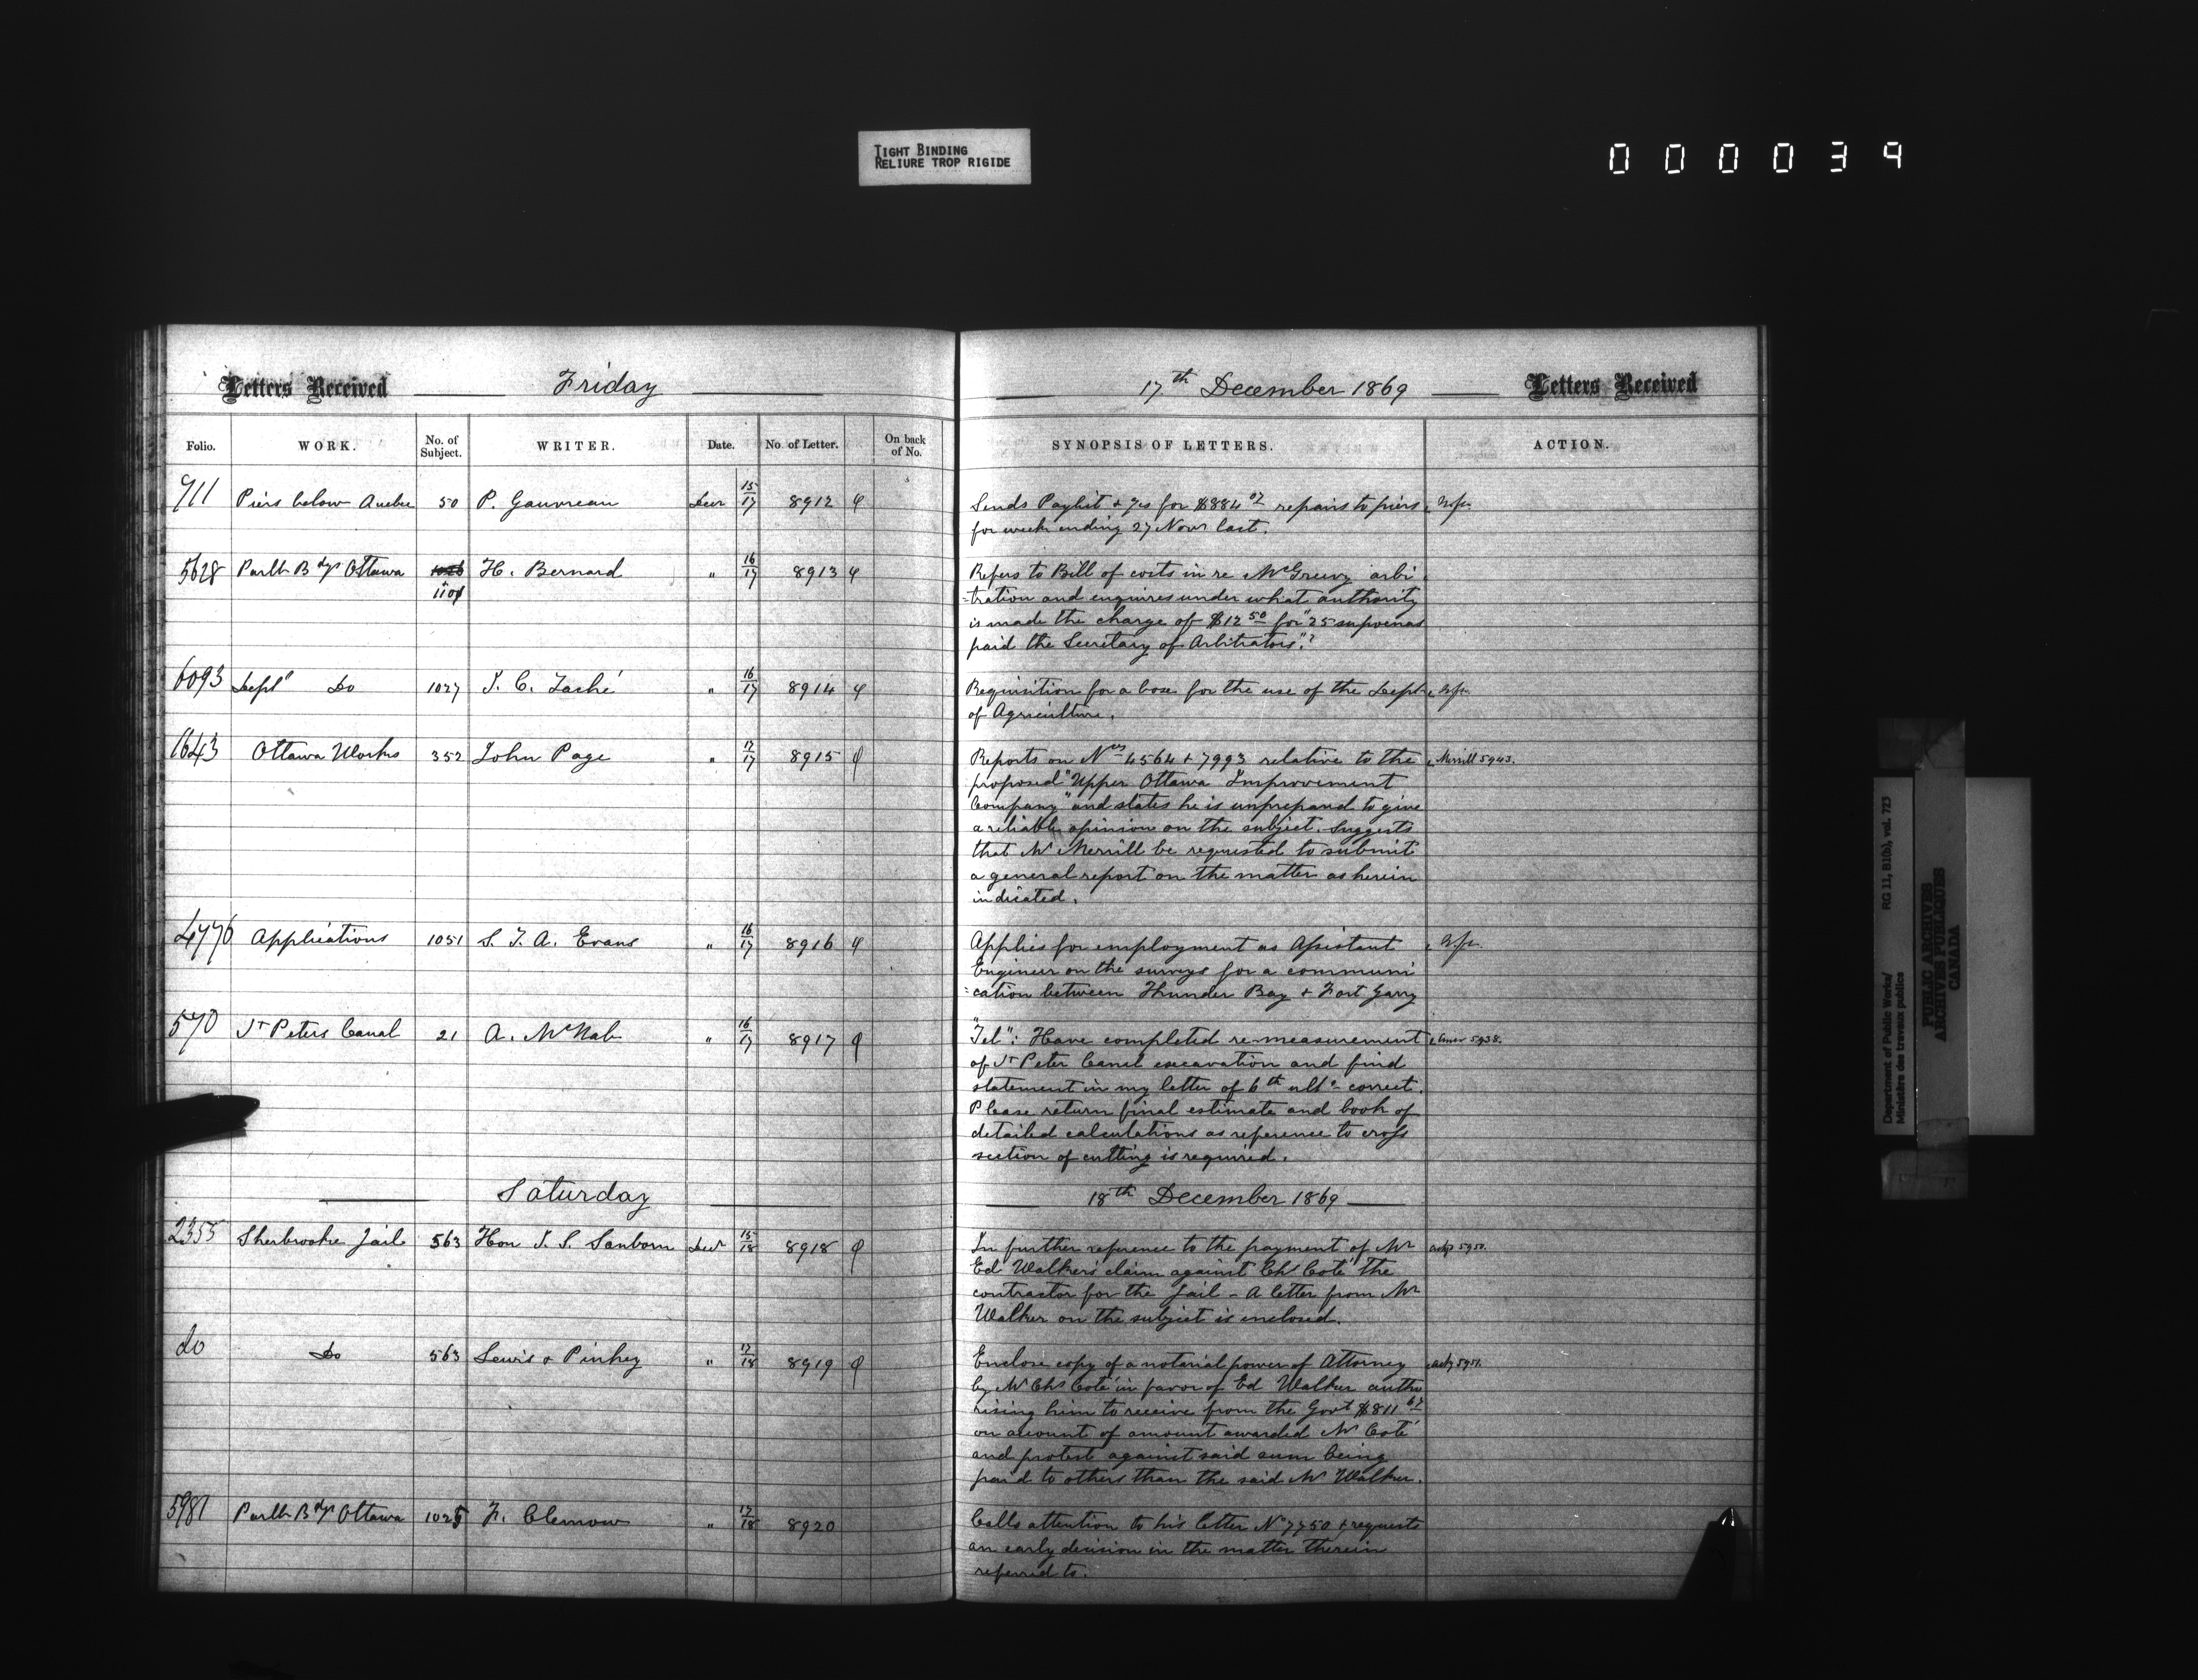 TIGHT BINDING
RELIURE TROP RIGIDE
000039
Letters Received Friday 17th December 1869 Letters Received
Folio. WORK. No. of Subject. WRITER. Date. No. of Letter. On back of No. SYNOPSIS OF LETTERS. ACTION.
911 Piers below Quebec 50 P. Gauvreau Decr 15/17 8912 Sends Paylist + for $884 07 repairs to piers
for week ending 27 Novr last.
5628 Parlt Bdgs Ottawa 1026 H. Bernard " 16/17 8913 Refers to Bill of costs in re McGreevy arbi
1104 -tration and enquires under what authority
is made the charge of $12 50 for "25 supoenas
paid the Secretary of Arbitrators"?
6093 Deptl Do 1027 J. C. Taché " 16/17 8914 Requisition for a box for the use of the Dept
of Agriculture.
1643 Ottawa Works 352 John Page " 17/17 8915 Reports on Nos 4564 + 7993 relative to the Merrill 5943.
proposed "Upper Ottawa Improvement
Company" and states he is unprepared to give
a reliable opinion on the subject. Suggests
that Mr Merrill be requested to submit
a general report on the matter as herein
indicated.
4776 Applications 1051 S. T. A. Evans " 16/17 8916 Applies for employment as Assistant
Engineer on the surveys for a communi
=cation between Thunder Bay + Fort Garry
570 St Peters Canal 21 A. McNab " 16/17 8917 "Tel": Have completed re-measurement 5938.
of St Peter Canal excavation and find
statement in my letter of 6th ulto correct.
Please return final estimate and book of
detailed calculations as reference to cross
section of cutting is required.
Saturday 18th December 1869
2355 Sherbrooke Jail 563 Hon J. S. Sanborn Decr 15/18 8918 In further reference to the payment of Mr ackg 5950.
Ed Walker's claim against Chs Coté the
contractor for the Jail - A letter from Mr
Walker on the subject is inclosed.
do Do 563 Lewis & Pinhey " 17/18 8919 Enclose copy of a notarial power of Attorney ackg 5951.
by Mr Chs Coté in favor of Ed Walker autho
rising him to receive from the Govt $811 67
on account of amount awarded Mr Coté
and protest against said sum being
paid to others than the said Mr Walker.
5981 Parlt Bdgs Ottawa 1025 F. Clemow " 17/18 8920 Calls attention to his letter No 7750 + requests
an early decision in the matter therein
referred to.
Department of Public Works/ RG 11, B1(b), vol. 723
Ministère des travaux publics
PUBLIC ARCHIVES
ARCHIVES PUBLIQUES
CANADA